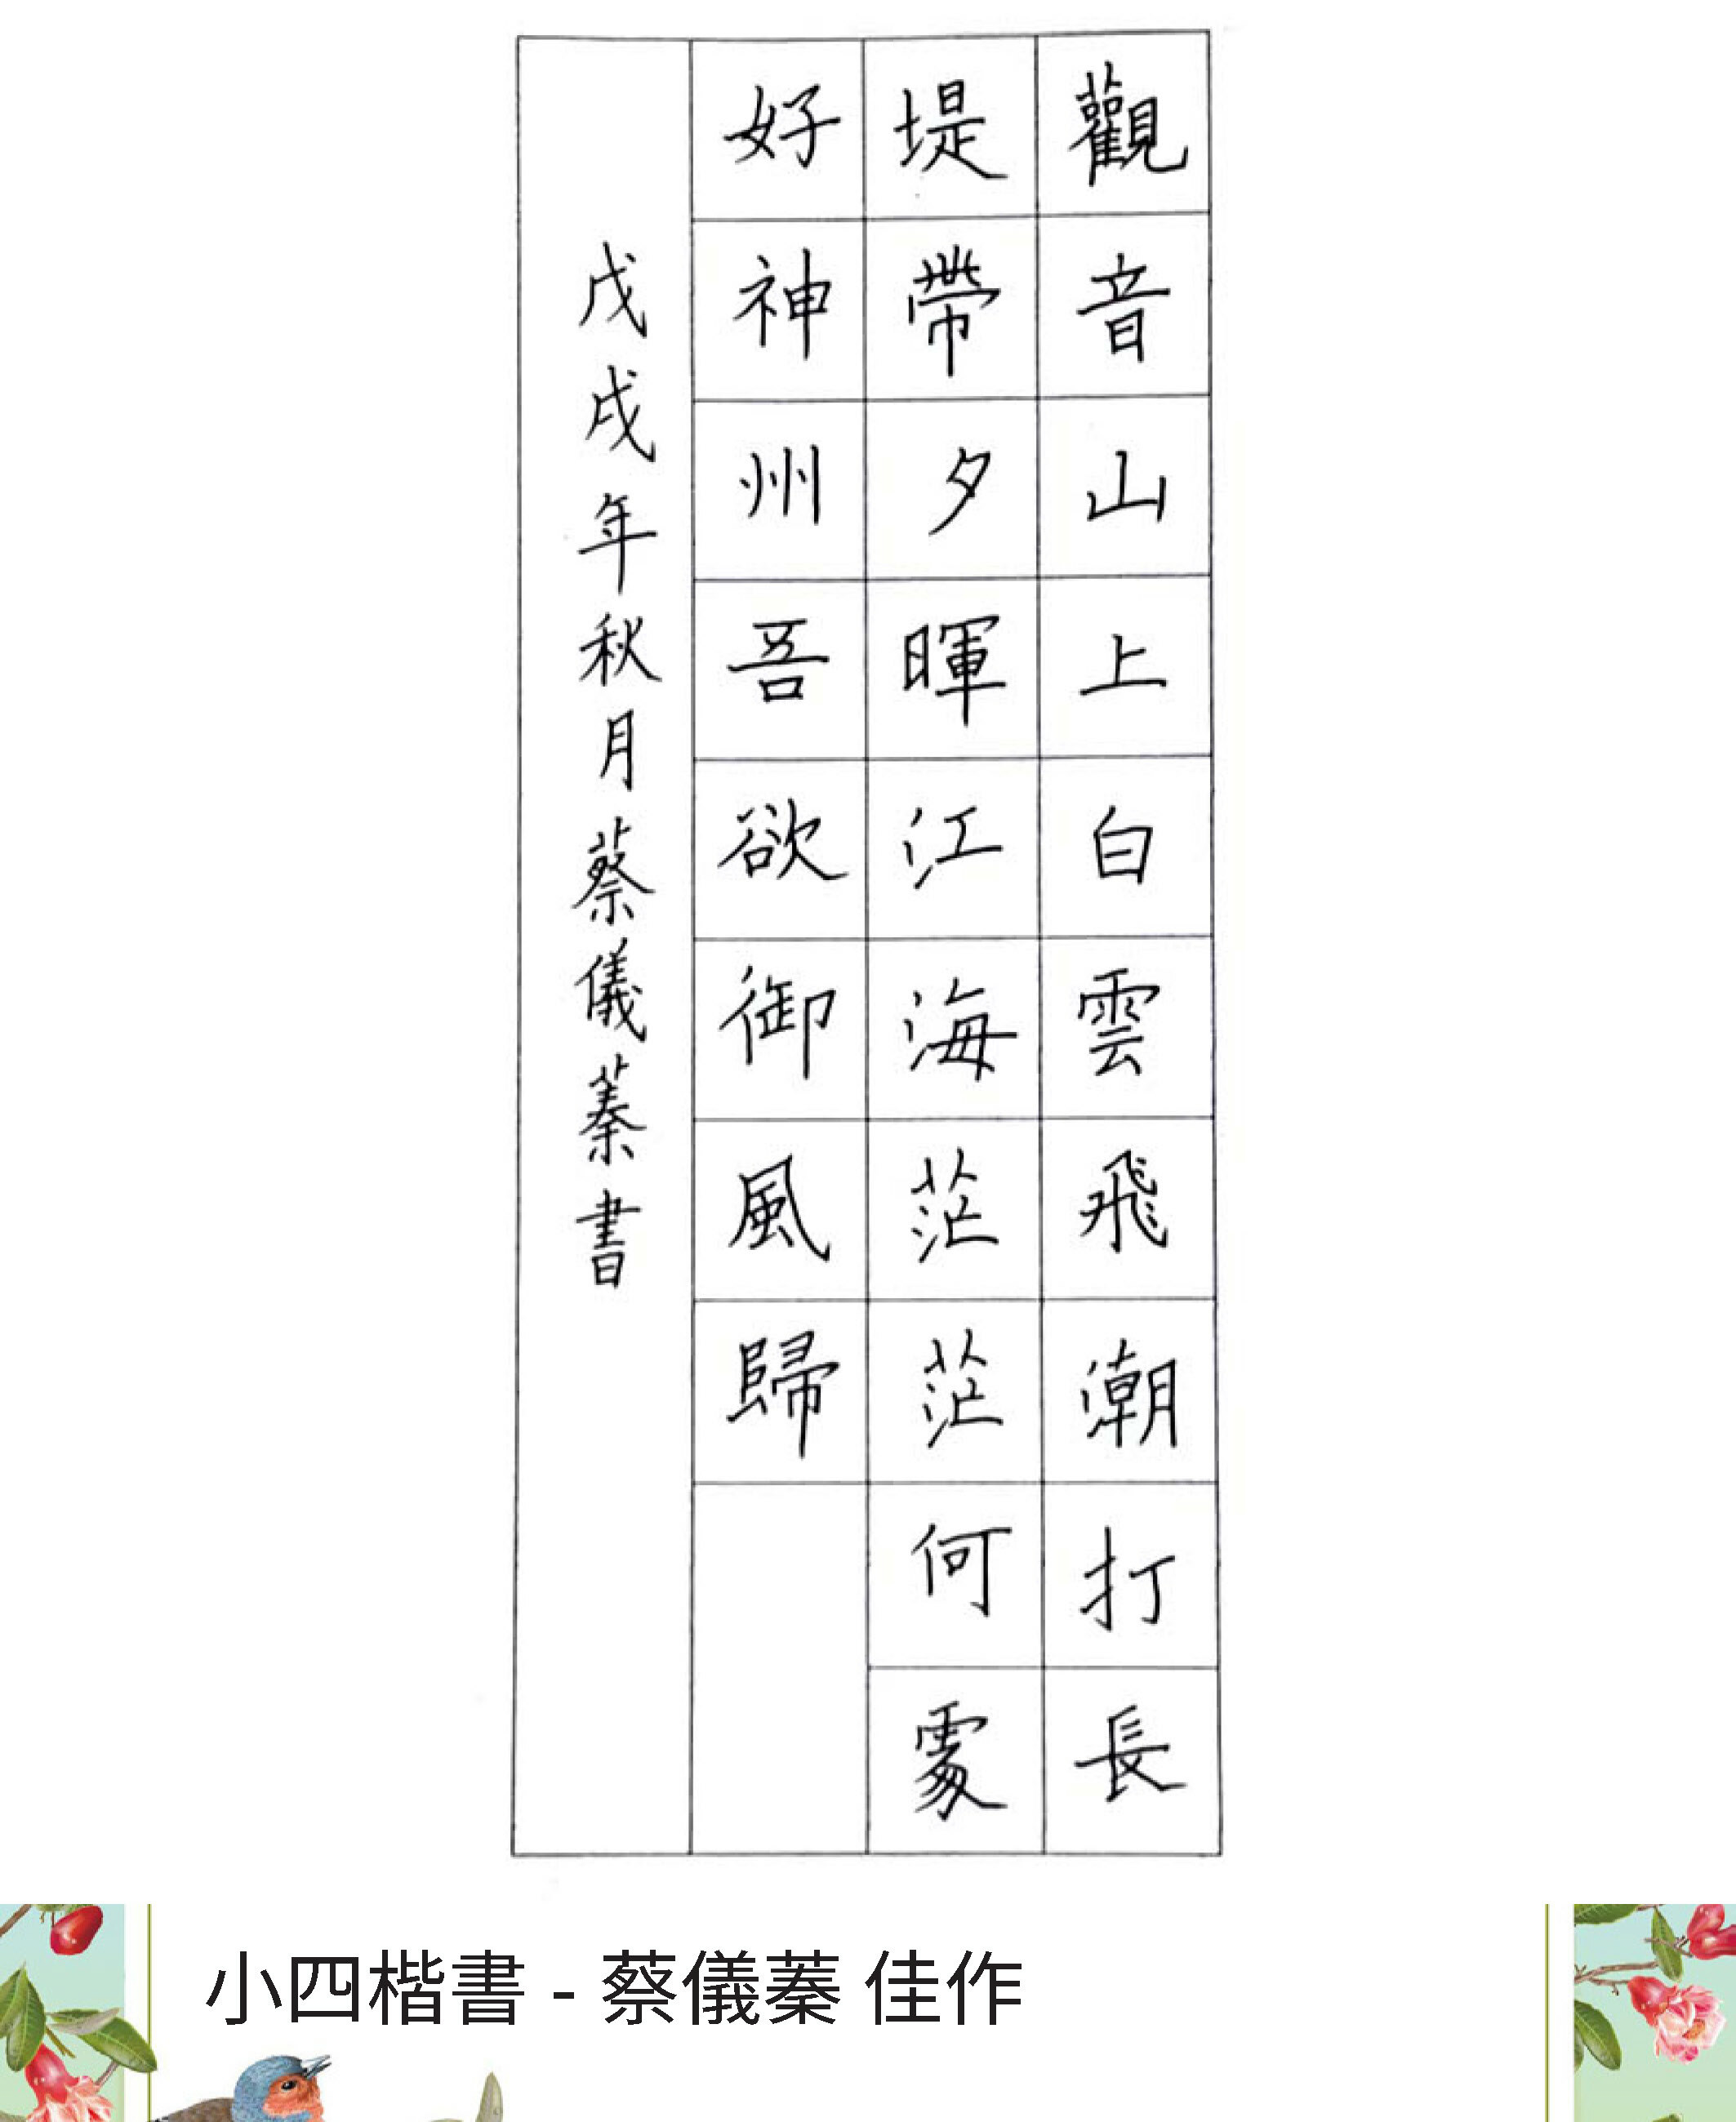 觀音山上白雲飛潮打長
堤帶夕暉江海茫茫何處
好神州吾欲御風歸
戊戌年秋月蔡儀蓁書
小四楷書 - 蔡儀蓁 佳作